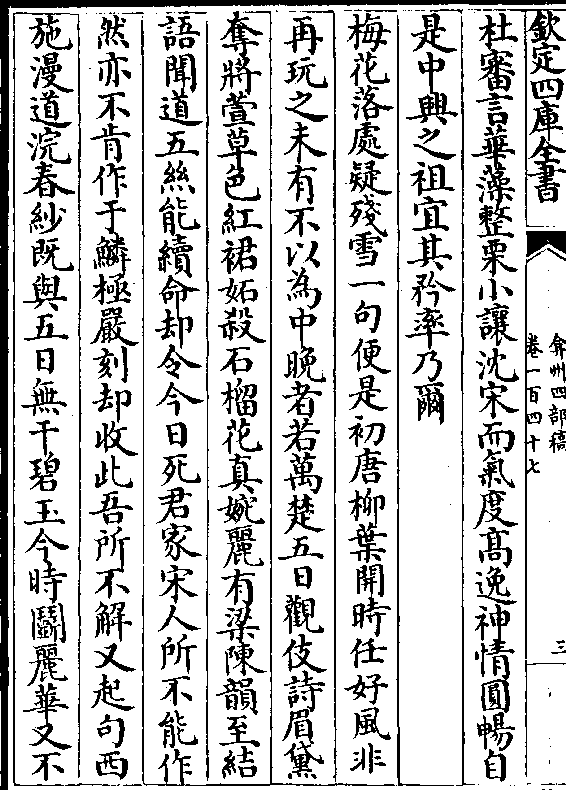 欽定四庫全書
弇州四部稿
卷一百四十七
三
杜審言華藻整栗小讓沈宋而氣度高逸神情圓暢自
是中興之祖宜其矜率乃爾
梅花落處疑殘雪一句便是初唐柳葉開時任好風非
再玩之未有不以為中晚者若萬楚五日觀伎詩眉黛
奪將萱草色紅裙妬殺石榴花真婉麗有梁陳韻至結
語聞道五絲能續命却令今日死君家宋人所不能作
然亦不肯作于鱗極嚴刻却收此吾所不解又起句西
施漫道浣春紗既與五日無干碧玉今時鬬麗華又不